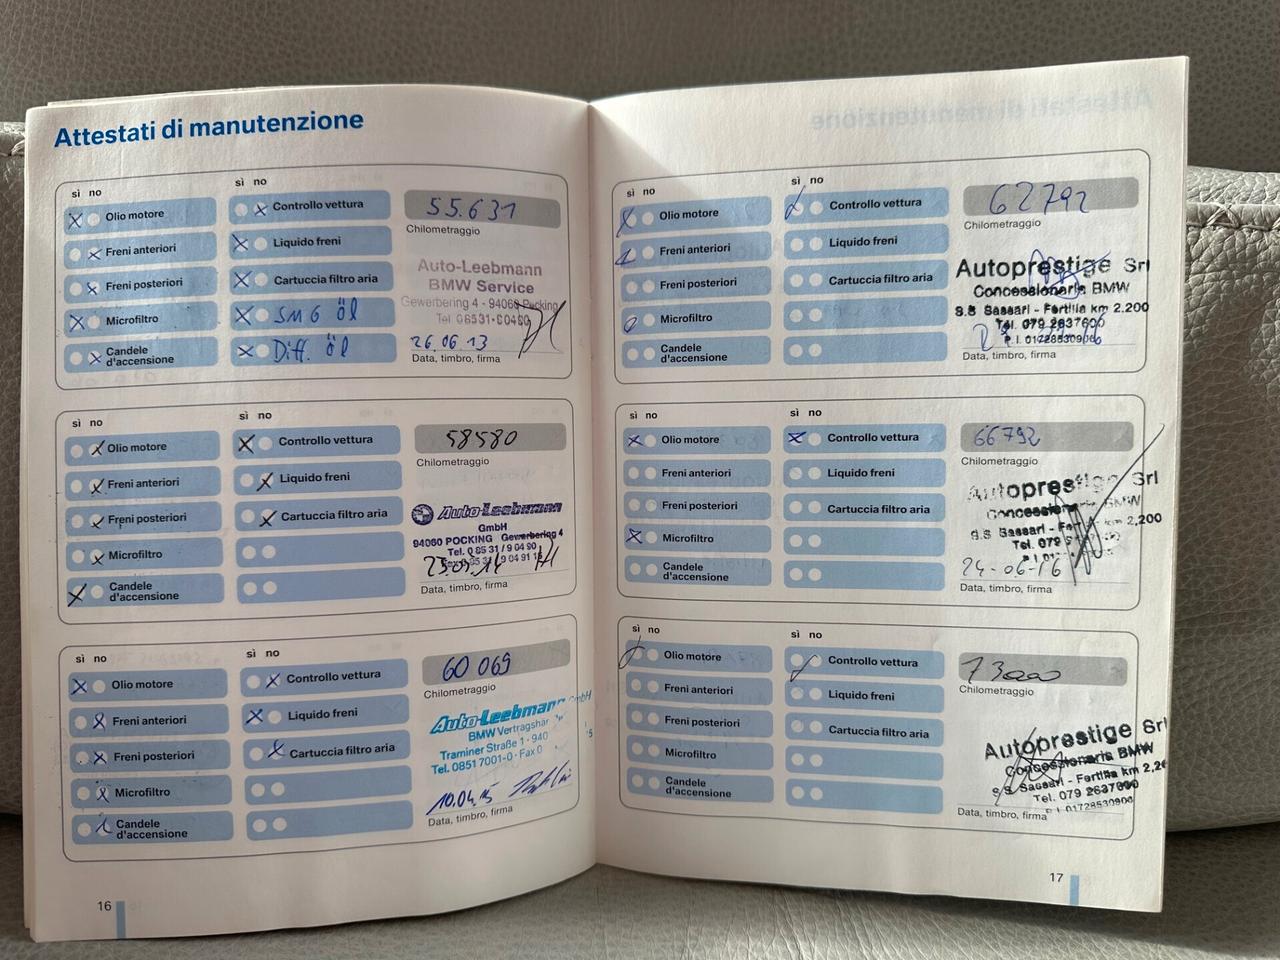 Attestati di manutenzione
sì no
sì no
Olio motore
Controllo vettura
55.631
Chilometraggio
Freni anteriori
Liquido freni
Freni posteriori
Cartuccia filtro aria
Auto-Leebmann
BMW Service
Gewerbering 4 - 94060 Pocking
Tel. 08531-90490
Microfiltro
SMG öl
Candele
d'accensione
Diff. öl
26.06.13
Data, timbro, firma
sì no
sì no
Olio motore
Controllo vettura
58580
Chilometraggio
Freni anteriori
Liquido freni
Freni posteriori
Cartuccia filtro aria
Auto-Leebmann
GmbH
94060 POCKING Gewerbering 4
Tel. 0 85 31 / 9 04 90
Microfiltro
Candele
d'accensione
Data, timbro, firma
sì no
sì no
Olio motore
Controllo vettura
60 069
Chilometraggio
Freni anteriori
Liquido freni
Freni posteriori
Cartuccia filtro aria
Auto-Leebmann GmbH
Traminer Straße 1 - 940
Tel. 0851 7001-0 · Fax 0
Microfiltro
Candele
d'accensione
10.04.15
Data, timbro, firma
16
sì no
sì no
Olio motore
Controllo vettura
62792
Chilometraggio
Freni anteriori
Liquido freni
Freni posteriori
Cartuccia filtro aria
Autoprestige Srl
Concessionaria BMW
S.S Sassari - Fertilia km 2.200
Tel. 079 2637600
P. I. 01728530906
Microfiltro
Candele
d'accensione
Data, timbro, firma
sì no
sì no
Olio motore
Controllo vettura
66792
Chilometraggio
Freni anteriori
Liquido freni
Freni posteriori
Cartuccia filtro aria
Autoprestige Srl
BMW
S.S Sassari - km 2,200
Tel. 079
Microfiltro
Candele
d'accensione
24-06-16
Data, timbro, firma
sì no
sì no
Olio motore
Controllo vettura
73000
Chilometraggio
Freni anteriori
Liquido freni
Freni posteriori
Cartuccia filtro aria
Autoprestige Srl
Concessionaria BMW
S.S Sassari - Fertilia km 2,2
Tel. 079 2637600
P I 01728530906
Microfiltro
Candele
d'accensione
Data, timbro, firma
17